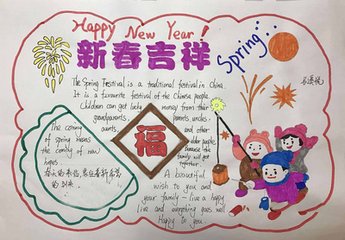 Happy New Year!
新春吉祥
Spring
The Spring Festival is a traditional festival in China.
It is a favourite festival of the Chinese people.
Children can get lucky money from their
grandparents, parents, uncles,
aunts, and other
older people.
family will get
together.
福
The coming
of spring means
the coming of new
hopes.
A beautiful
wish to you and
your family - live a happy
live and everything goes well
Happy to you.